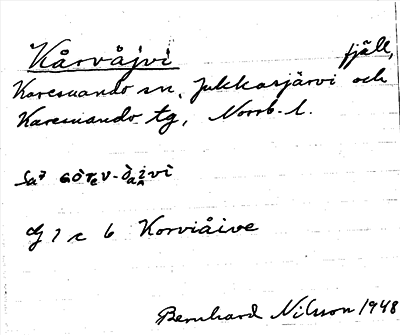 Kårvåjvi fjäll,
Karesuando sn, Jukkasjärvi och
Karesuando tg, Norrb. l.
G 1 c 6 Korviåive
Bernhard Nilsson 1948